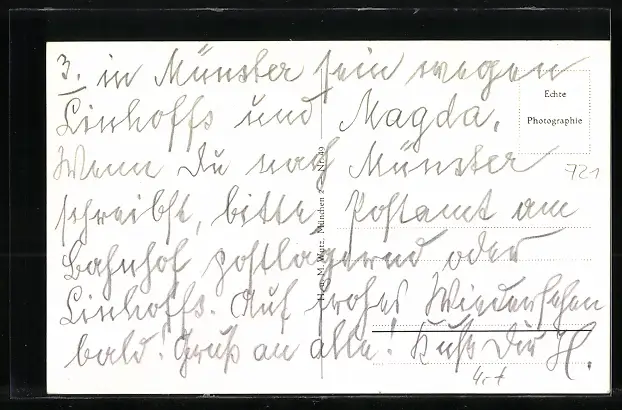 3. in Münster sein wegen
Linhoffs und Magda.
Wenn Du nach Münster
schreibst, bitte Postamt am
Bahnhof postlagernd oder
Linhoffs. Auf frohes Wiedersehen
bald! Gruß an alle! Kuss Dir H.
Echte
Photographie
721
München 2
Nr. 49